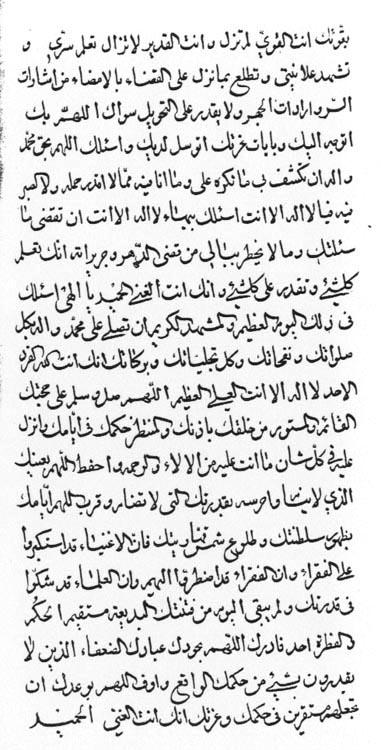 بقوتك انت القوي لم تزل و انت القدير لا تزال تعلم سري و
تشهد علانيتي و تطلع بما نزل على القضاء بالامضاء من اشارات
السر و ارادات الجهر و لا يقدر على التحويل سواك اللهم بك
اتوجه اليك و بايات عزتك اتوسل لديك و اسئلك اللهم بحق محمد
و اله ان تكشف بي ما نكره على و ما انا فيه مما لا اقدر حمله و لا اصبر
فيه فيا لا اله الا انت اسئلك بهاء لا اله الا انت ان تقضي ما
سئلتك و ما لا يخطر ببالي من قضى الدهر و جريرانه انك تعلم
كل شيء و تقدر على كل شيء و انك انت الغني الحميد يا الهي اسئلك
في ذلك اليوم العظيم و المشهد الكريم ان تصلي على محمد و اله بكل
صلواتك و نفحاتك و كل تجلياتك و بركاتك انك انت الله الفرد
الاحد لا اله الا انت العلي العظيم اللهم صل و سلم على حجتك
القائم و المستور من خلقك باذنك و المنتظر حكمك في ايامك و انزل
عليه في كل شان ما انت عليه من الالاء و الرحمة و احفظ اللهم بعينك
الذي لا ينام و احرسه بقدرتك التي لا تضار و قرب اللهم ايامك
بظهور سلطنتك و طلوع شمس فان الاغنياء قد استكبروا
على الفقراء و ان الفقراء قد اضطروا اليهم و ان العلماء قد شكوا
في قدرتك و لم يبقى اليوم من فتنتك البديعة مستقيم الحكم
و الفطرة احد فادرك اللهم بجودك عبادك الضعفاء الذين لا
يقدرون بشيء من حكمك الواقع و اوف اللهم بوعدك ان
تجعلهم مستقرين في حكمك و عزتك انك انت الغني الحميد